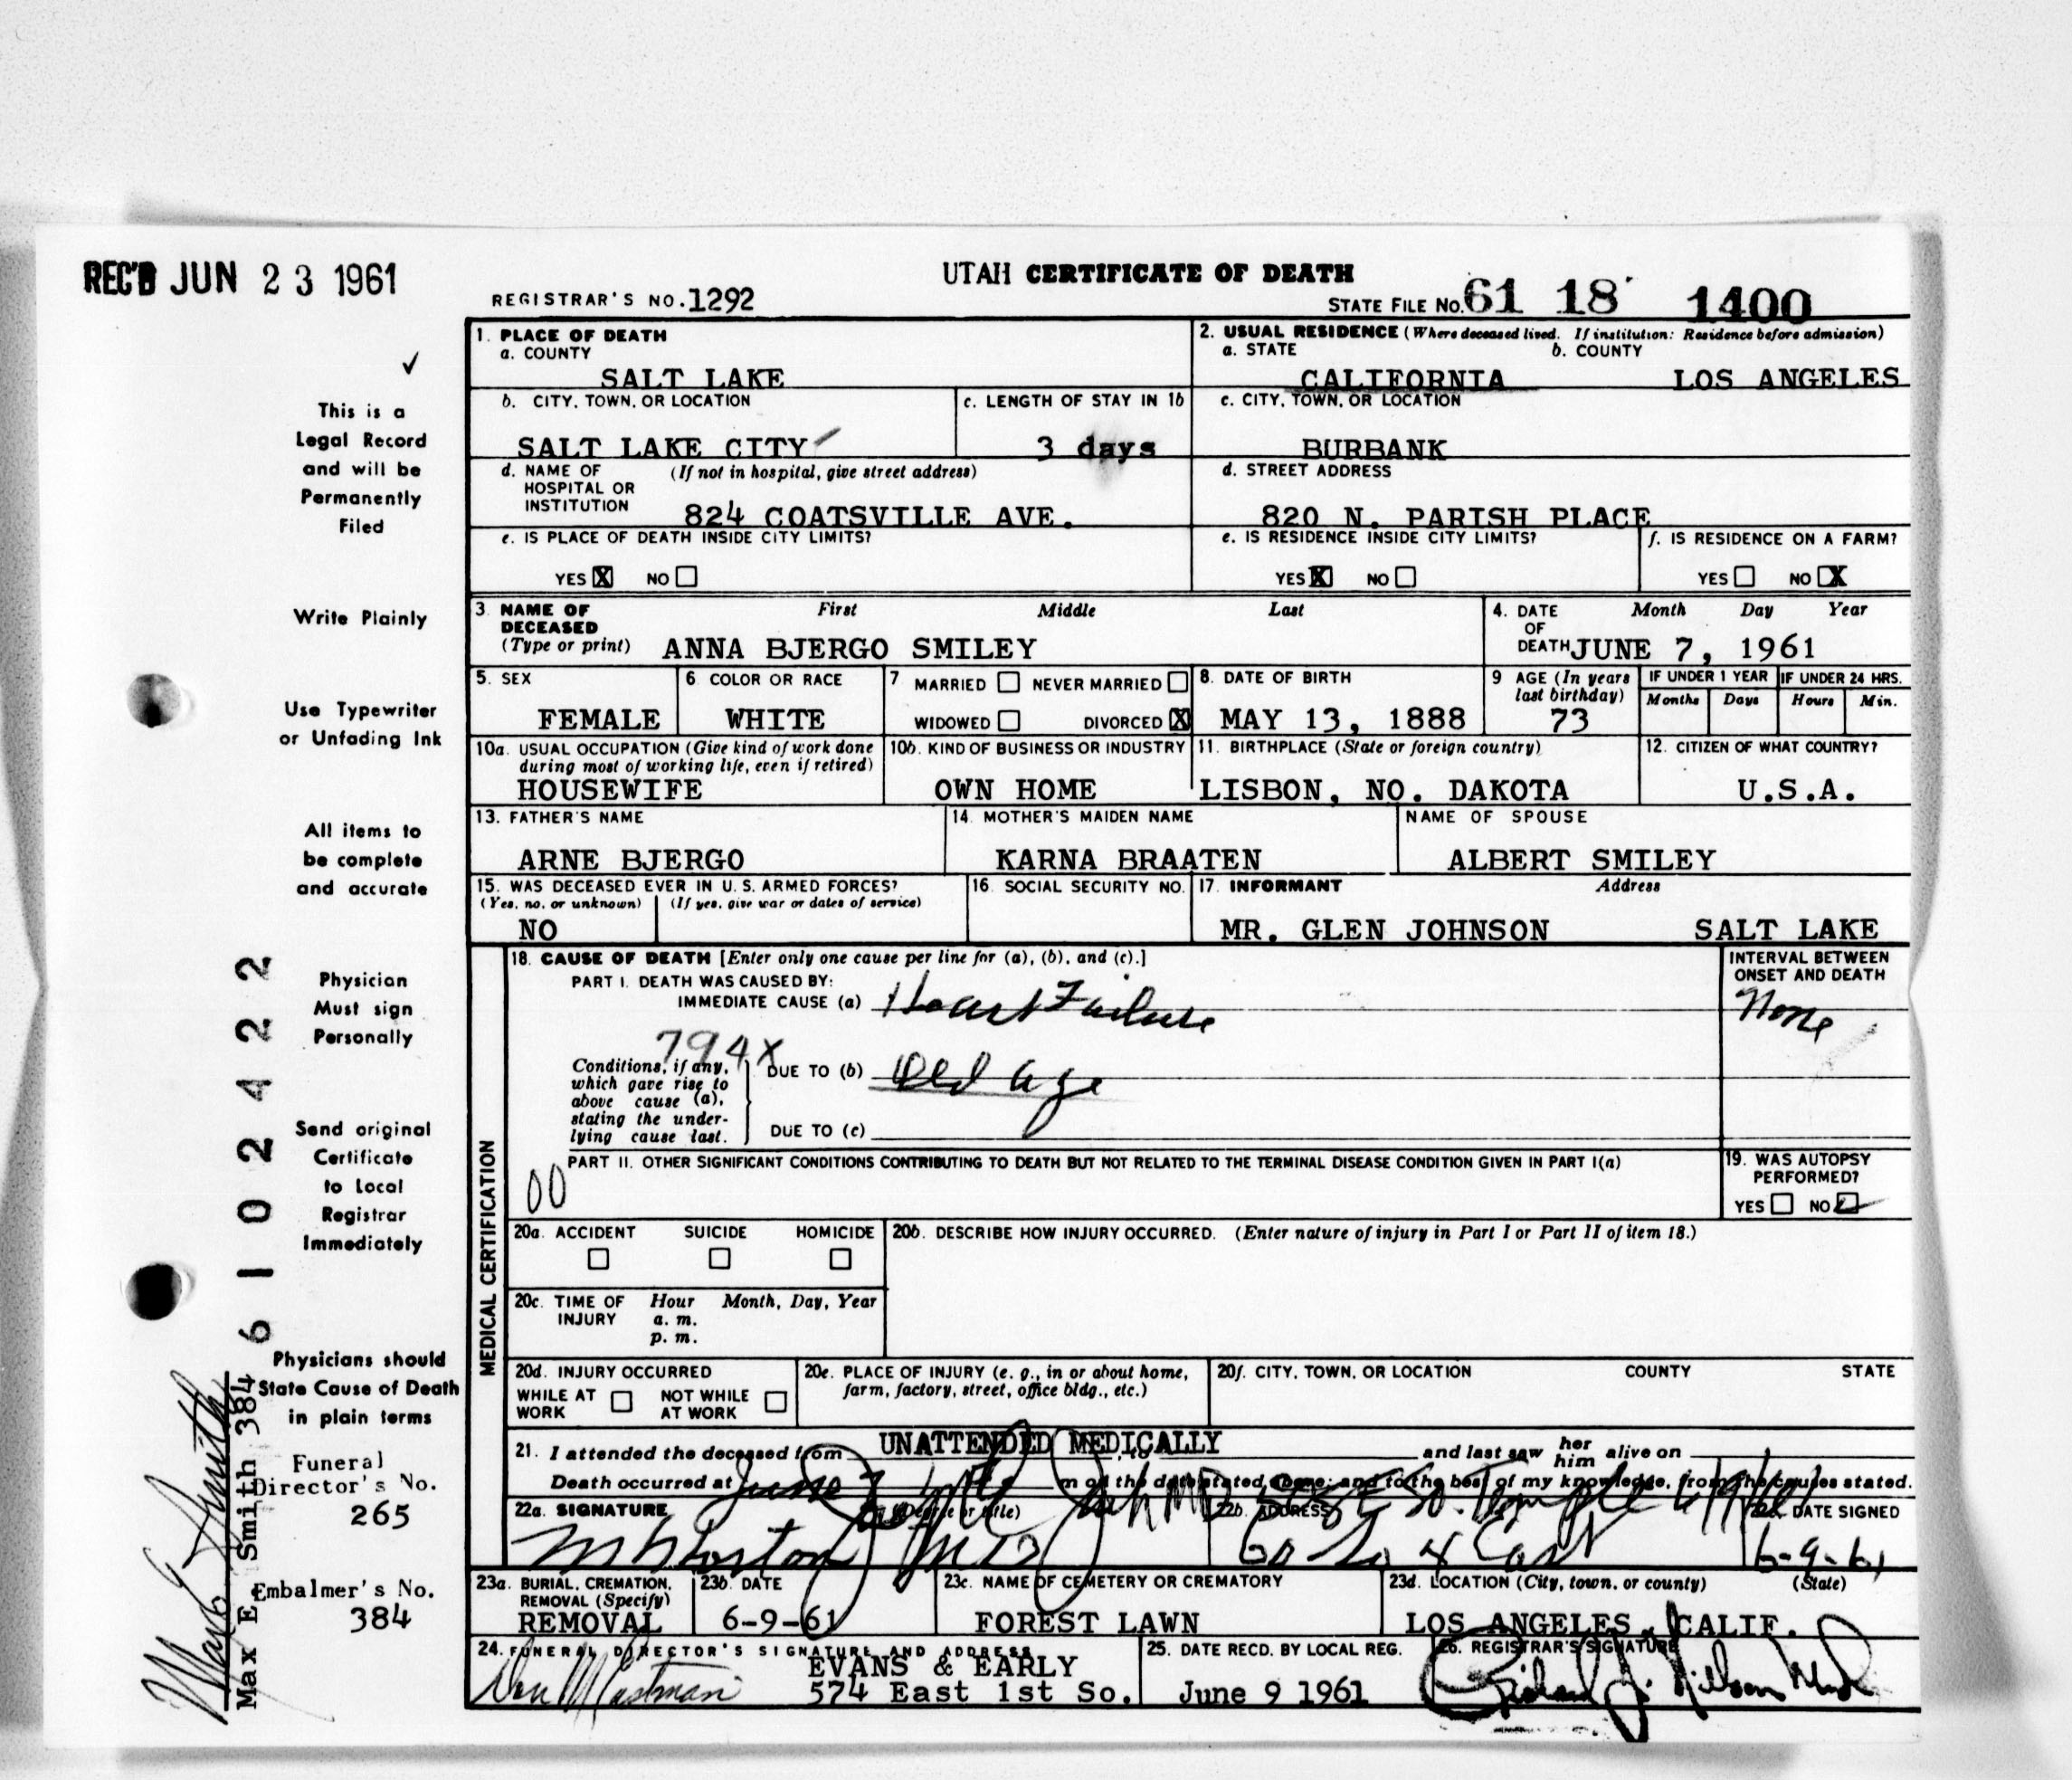 REC'D JUN 23 1961
UTAH CERTIFICATE OF DEATH
REGISTRAR'S NO. 1292
STATE FILE NO. 61 18 1400
✓
This is a
Legal Record
and will be
Permanently
Filed
Write Plainly
Use Typewriter
or Unfading Ink
All items to
be complete
and accurate
Physician
Must sign
Personally
Send original
Certificate
to Local
Registrar
Immediately
Physicians should
State Cause of Death
in plain terms
Funeral
Director's No.
265
Embalmer's No.
384
6102422
Max E Smith 384
Max E Smith
1. PLACE OF DEATH
a. COUNTY
SALT LAKE
2. USUAL RESIDENCE (Where deceased lived. If institution: Residence before admission)
a. STATE b. COUNTY
CALIFORNIA LOS ANGELES
b. CITY, TOWN, OR LOCATION
SALT LAKE CITY
c. LENGTH OF STAY IN 1b
3 days
c. CITY, TOWN, OR LOCATION
BURBANK
d. NAME OF (If not in hospital, give street address)
HOSPITAL OR
INSTITUTION
824 COATSVILLE AVE.
d. STREET ADDRESS
820 N. PARISH PLACE
e. IS PLACE OF DEATH INSIDE CITY LIMITS?
YES X NO
e. IS RESIDENCE INSIDE CITY LIMITS?
YES X NO
f. IS RESIDENCE ON A FARM?
YES NO X
3. NAME OF First Middle Last
DECEASED
(Type or print) ANNA BJERGO SMILEY
4. DATE Month Day Year
OF
DEATH JUNE 7, 1961
5. SEX
FEMALE
6 COLOR OR RACE
WHITE
7 MARRIED NEVER MARRIED
WIDOWED DIVORCED X
8. DATE OF BIRTH
MAY 13, 1888
9 AGE (In years
last birthday)
73
IF UNDER 1 YEAR IF UNDER 24 HRS.
Months Days Hours Min.
10a. USUAL OCCUPATION (Give kind of work done
during most of working life, even if retired)
HOUSEWIFE
10b. KIND OF BUSINESS OR INDUSTRY
OWN HOME
11. BIRTHPLACE (State or foreign country)
LISBON, NO. DAKOTA
12. CITIZEN OF WHAT COUNTRY?
U.S.A.
13. FATHER'S NAME
ARNE BJERGO
14. MOTHER'S MAIDEN NAME
KARNA BRAATEN
NAME OF SPOUSE
ALBERT SMILEY
15. WAS DECEASED EVER IN U. S. ARMED FORCES?
(Yes, no, or unknown) (If yes, give war or dates of service)
NO
16. SOCIAL SECURITY NO.
17. INFORMANT Address
MR. GLEN JOHNSON SALT LAKE
MEDICAL CERTIFICATION
18. CAUSE OF DEATH [Enter only one cause per line for (a), (b), and (c).]
PART I. DEATH WAS CAUSED BY:
IMMEDIATE CAUSE (a) Heart Failure
INTERVAL BETWEEN
ONSET AND DEATH
None
794X
Conditions, if any,
which gave rise to
above cause (a),
stating the under-
lying cause last.
DUE TO (b) Old Age
DUE TO (c)
PART II. OTHER SIGNIFICANT CONDITIONS CONTRIBUTING TO DEATH BUT NOT RELATED TO THE TERMINAL DISEASE CONDITION GIVEN IN PART I(a)
00
19. WAS AUTOPSY
PERFORMED?
YES NO ✓
20a. ACCIDENT SUICIDE HOMICIDE
20b. DESCRIBE HOW INJURY OCCURRED. (Enter nature of injury in Part I or Part II of item 18.)
20c. TIME OF Hour Month, Day, Year
INJURY a. m.
p. m.
20d. INJURY OCCURRED
WHILE AT NOT WHILE
WORK AT WORK
20e. PLACE OF INJURY (e. g., in or about home,
farm, factory, street, office bldg., etc.)
20f. CITY, TOWN, OR LOCATION COUNTY STATE
21. I attended the deceased from UNATTENDED MEDICALLY, to and last saw her him alive on
Death occurred at June 7 m on the date stated above; and to the best of my knowledge, from the causes stated.
22a. SIGNATURE (Degree or title)
MD
22b. ADDRESS
So. Temple
22c. DATE SIGNED
6-9-61
23a. BURIAL, CREMATION,
REMOVAL (Specify)
REMOVAL
23b. DATE
6-9-61
23c. NAME OF CEMETERY OR CREMATORY
FOREST LAWN
23d. LOCATION (City, town, or county) (State)
LOS ANGELES, CALIF.
24. FUNERAL DIRECTOR'S SIGNATURE AND ADDRESS
EVANS & EARLY
574 East 1st So.
25. DATE RECD. BY LOCAL REG.
June 9 1961
26. REGISTRAR'S SIGNATURE